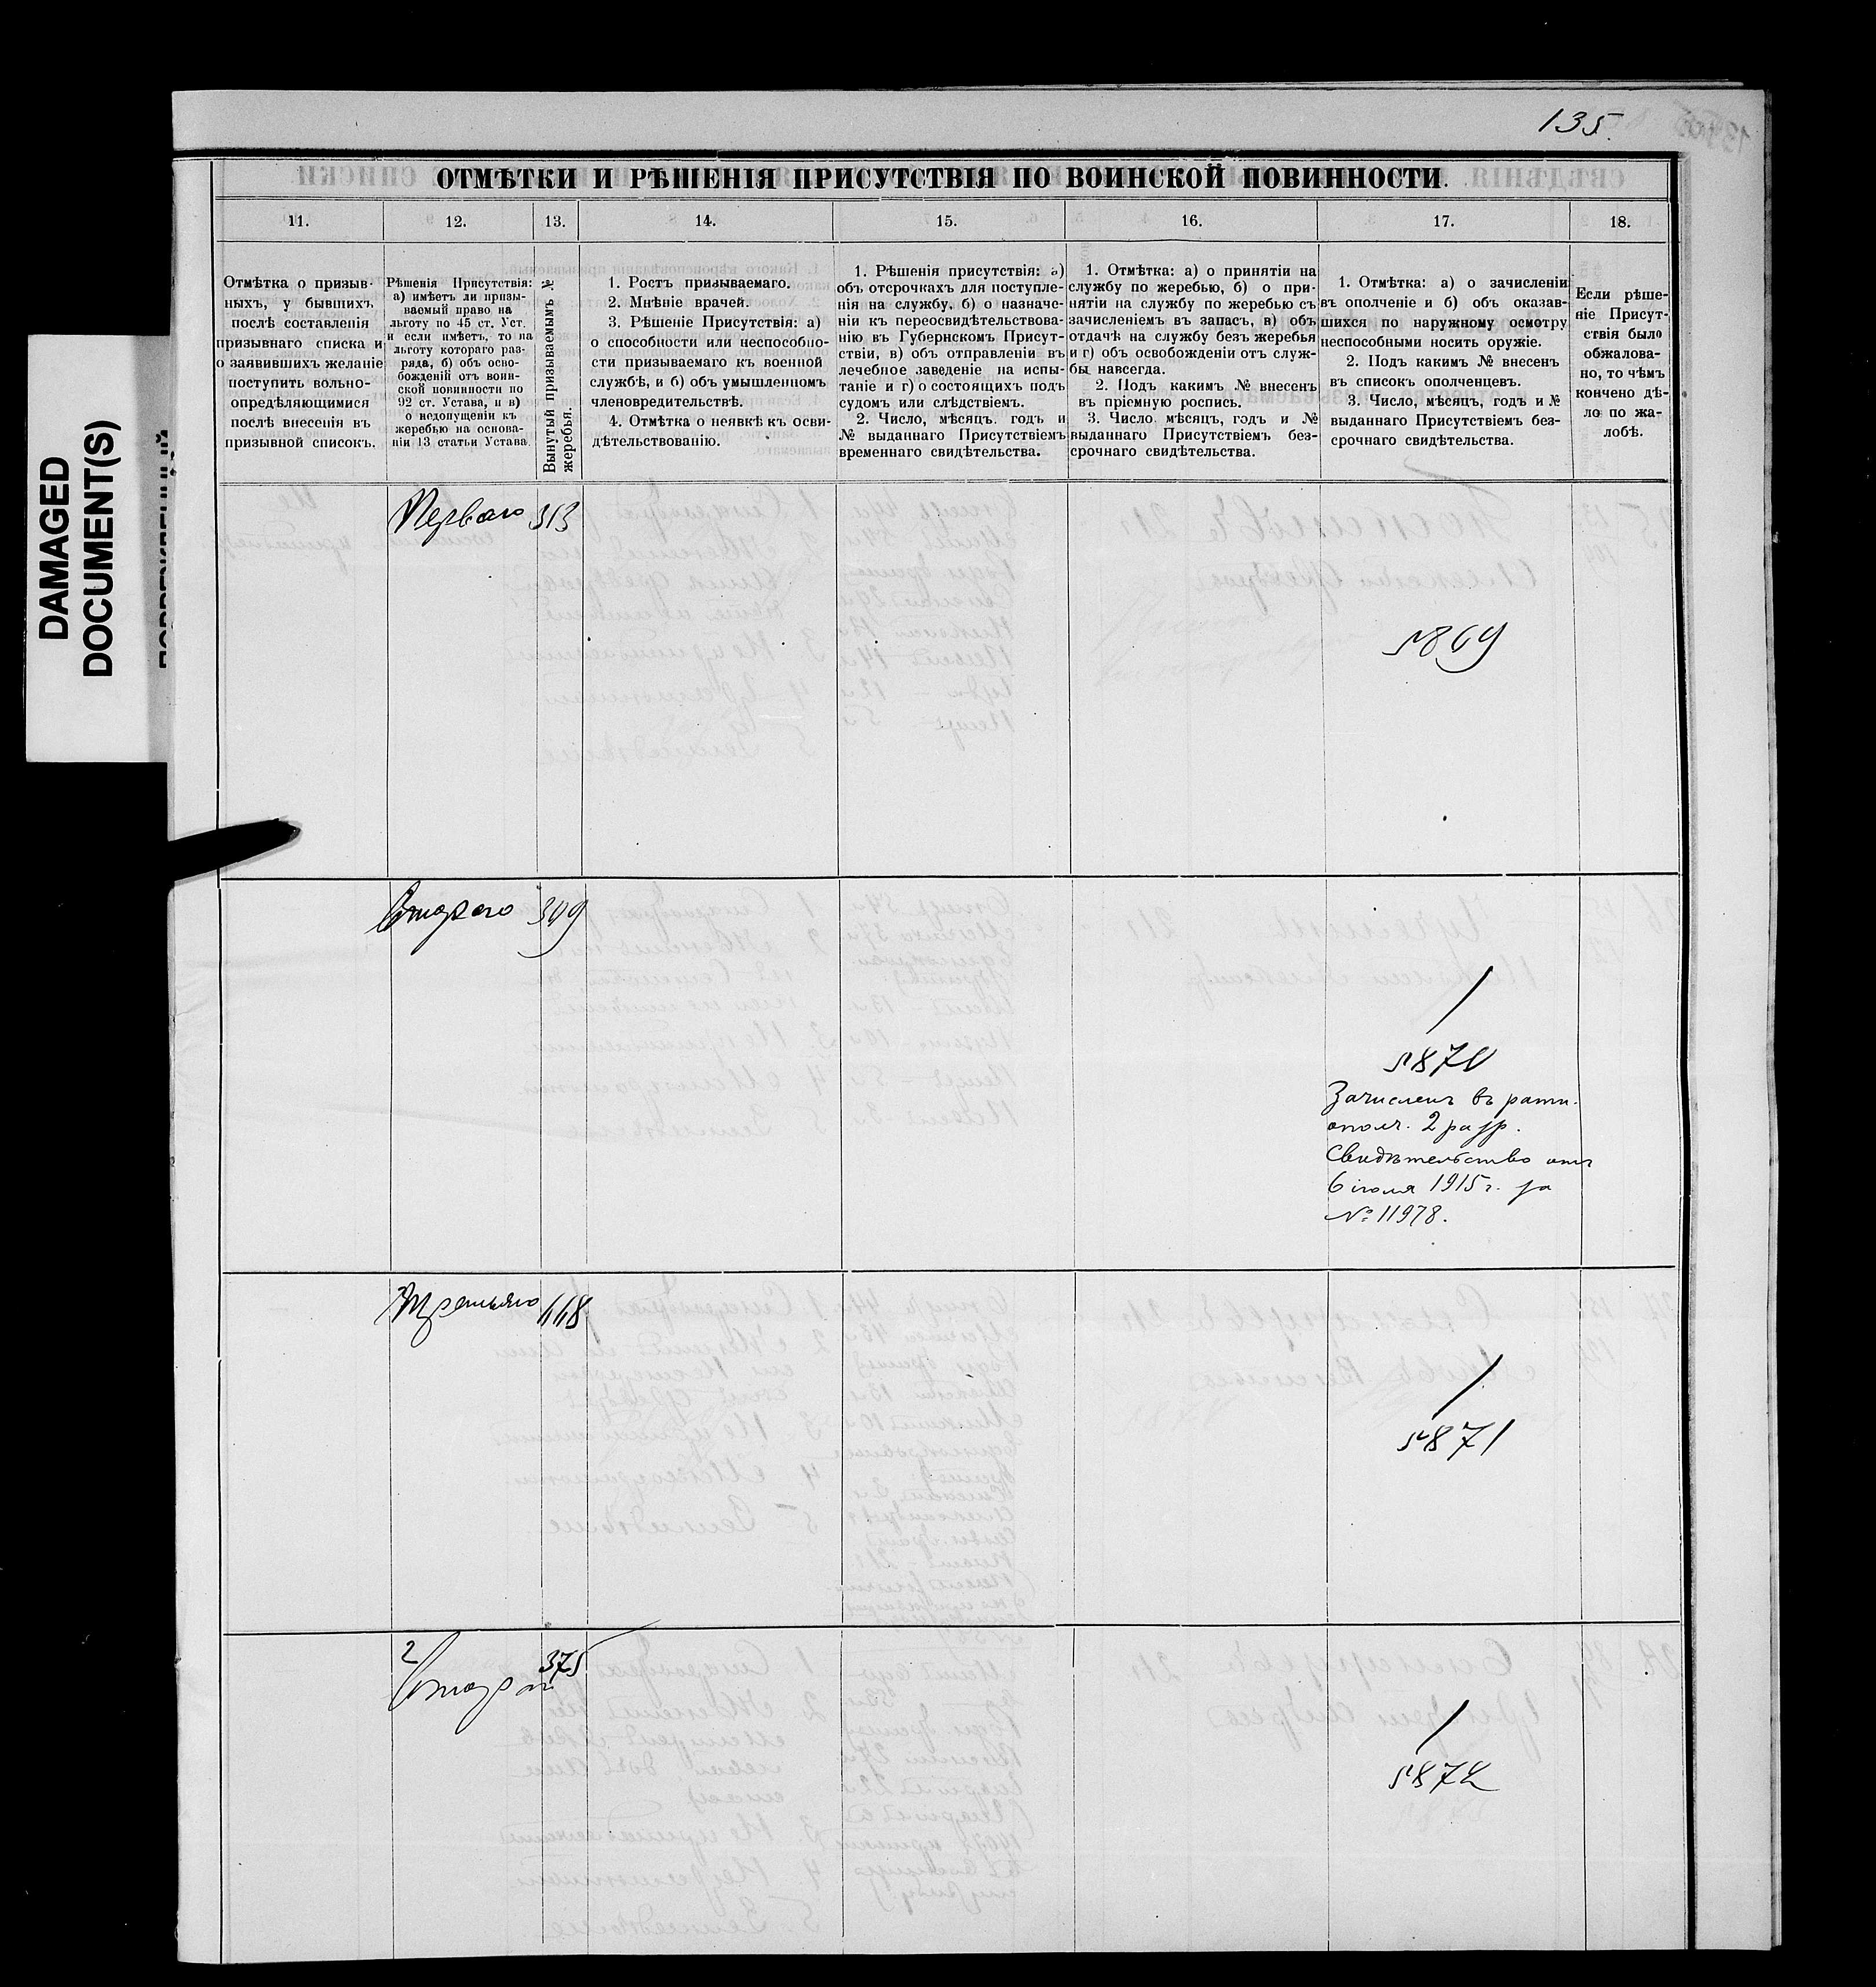 135.
DAMAGED
DOCUMENT(S)
ОТМѢТКИ И РѢШЕНІЯ ПРИСУТСТВІЯ ПО ВОИНСКОЙ ПОВИННОСТИ.
11.
12.
13.
14.
15.
16.
17.
18.
Отмѣтка о призыв-
ныхъ, у бывшихъ
послѣ составленія
призывнаго списка и
о заявившихъ желаніе
поступить вольно-
опредѣляющимися
послѣ внесенія въ
призывной списокъ.
Рѣшенія Присутствія:
а) имѣетъ ли призы-
ваемый право на
льготу по 45 ст. Уст.
и если имѣетъ, то на
льготу котораго раз-
ряда, б) объ осво-
божденіи отъ воин-
ской повинности по
92 ст. Устава, и в)
о недопущеніи къ
жеребью на основа-
ніи 13 статьи Устава.
Вынутый призываемымъ №
жеребья.
1. Ростъ призываемаго.
2. Мнѣніе врачей.
3. Рѣшеніе Присутствія: а)
о способности или неспособно-
сти призываемаго къ военной
службѣ, и б) объ умышленномъ
членовредительствѣ.
4. Отмѣтка о неявкѣ къ осви-
дѣтельствованію.
1. Рѣшенія присутствія: а)
объ отсрочкахъ для поступле-
нія на службу, б) о назначе-
ніи къ переосвидѣтельствова-
нію въ Губернскомъ Присут-
ствіи, в) объ отправленіи въ
лечебное заведеніе на испы-
таніе и г) о состоящихъ подъ
судомъ или слѣдствіемъ.
2. Число, мѣсяцъ, годъ и
№ выданнаго Присутствіемъ
временнаго свидѣтельства.
1. Отмѣтка: а) о принятіи на
службу по жеребью, б) о при-
нятіи на службу по жеребью съ
зачисленіемъ въ запасъ, в) объ
отдачѣ на службу безъ жеребья
и г) объ освобожденіи отъ служ-
бы навсегда.
2. Подъ какимъ № внесенъ
въ пріемную роспись.
3. Число, мѣсяцъ, годъ и №
выданнаго Присутствіемъ без-
срочнаго свидѣтельства.
1. Отмѣтка: а) о зачисленіи
въ ополченіе и б) объ оказав-
шихся по наружному осмотру
неспособными носить оружіе.
2. Подъ какимъ № внесенъ
въ списокъ ополченцевъ.
3. Число, мѣсяцъ, годъ и №
выданнаго Присутствіемъ без-
срочнаго свидѣтельства.
Если рѣше-
ніе Присут-
ствія было
обжалова-
но, то чѣмъ
кончено дѣ-
ло по жа-
лобѣ.
Перваго 313
5869
Втораго 309
5870
Зачисленъ въ ратн.
ополч. 2 разр.
Свидѣтельство отъ
6 іюля 1915 г. за
№ 11978.
Третьяго 448
5871
2
Втораго 375
5872